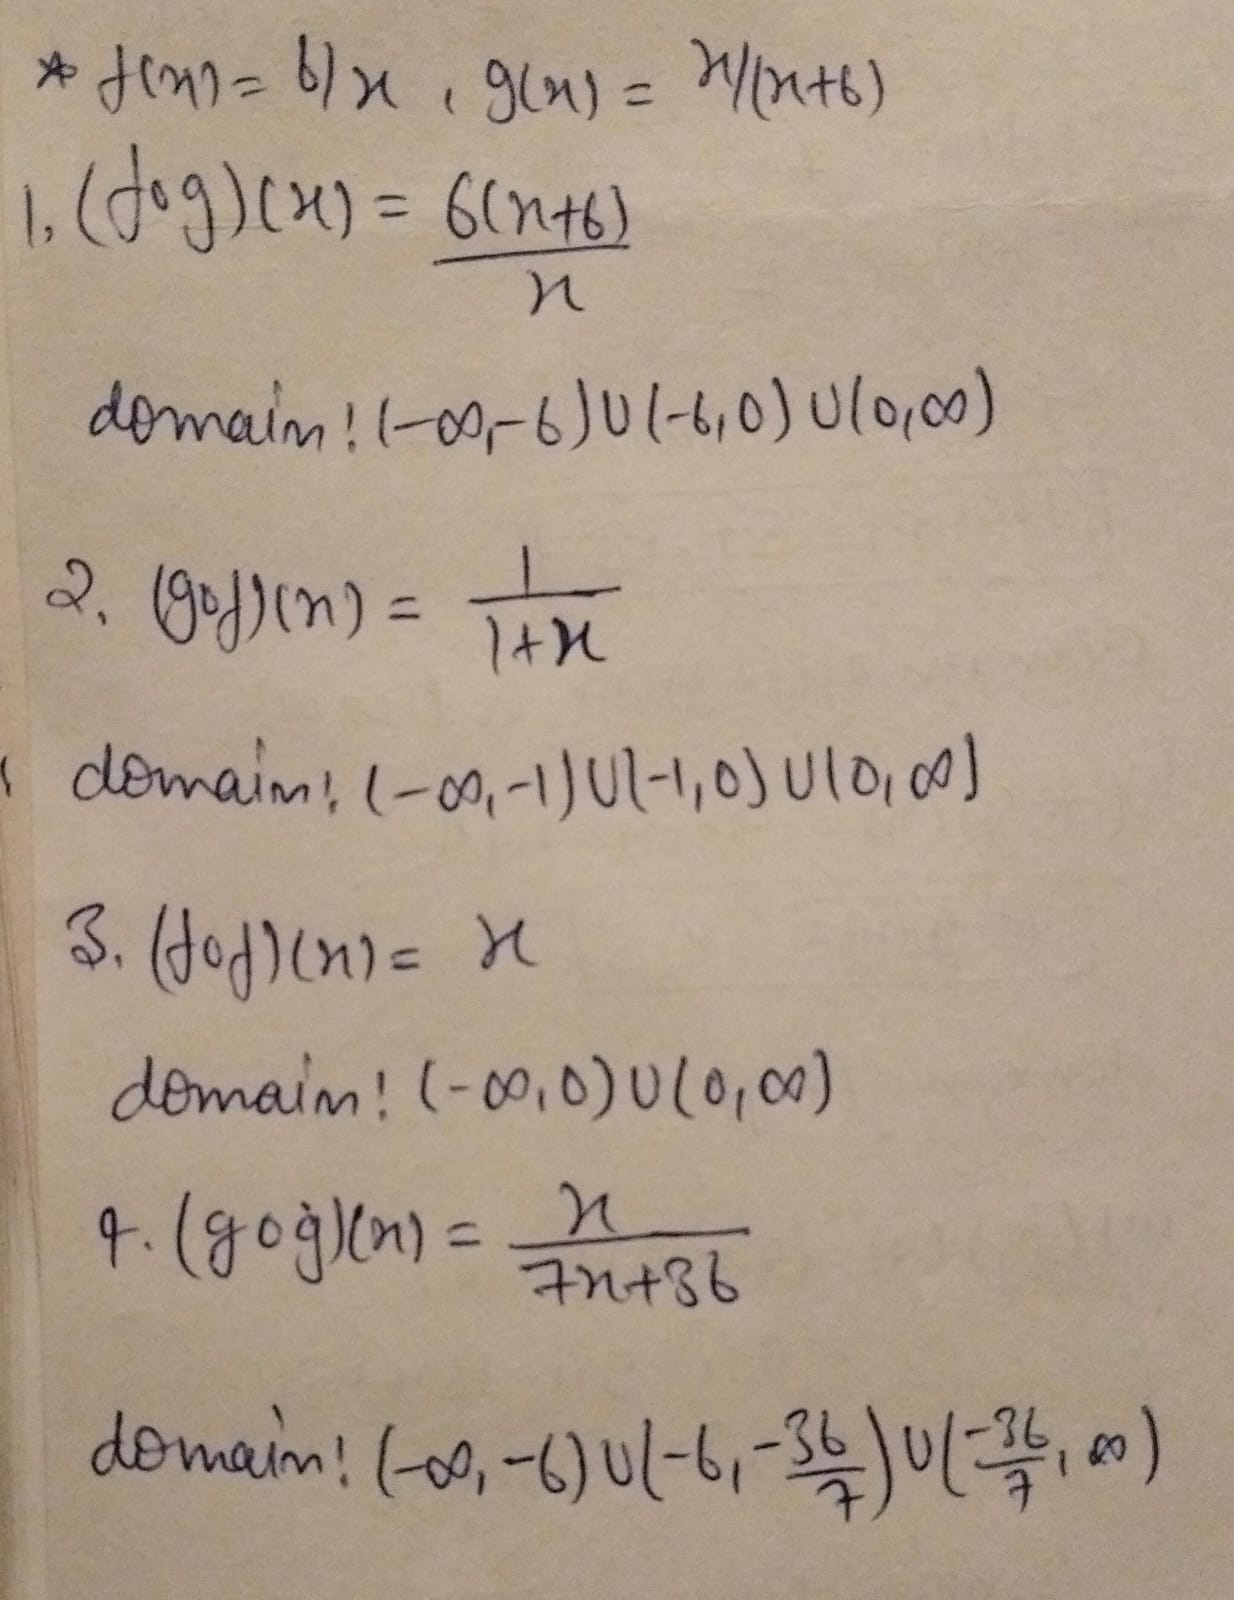 * f(x) = 6/x , g(x) = x/(x+6)
1, (fog)(x) = 6(x+6)/x
domain: (-∞,-6)U(-6,0)U(0,∞)
2. (gof)(x) = 1/1+x
domain: (-∞,-1)U(-1,0)U(0,∞)
3. (fof)(x) = x
domain: (-∞,0)U(0,∞)
4. (gog)(x) = x/7x+36
domain: (-∞,-6)U(-6,-36/7)U(-36/7,∞)